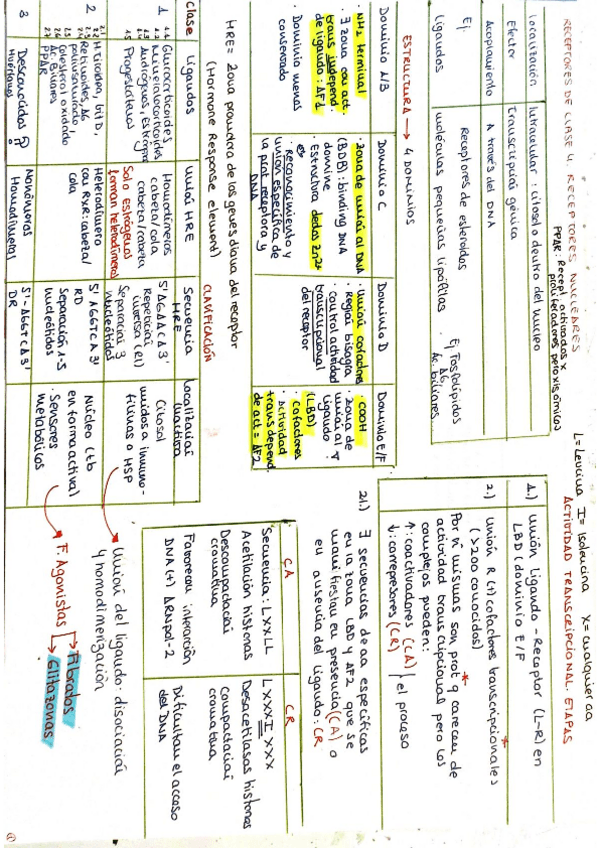 RECEPTORES DE CLASE 4. RECEPTORES NUCLEARES
PPAR: Recept. activados x
proliferadores peroxisómicos
Localización | Intracelular: citosol o dentro del núcleo
Efector | Transcripción génica
Acoplamiento | A través del DNA
Ej: | Receptores de esteroides
Ligandos | moléculas pequeñas lipófilas. Ej Fosfolípidos
AG
Ac. biliares
ESTRUCTURA → 4 DOMINIOS
Dominio A/B
· NH2 terminal
· ∃ zona con act.
trans independ.
de ligando: AF1
· Dominio menos
conservado
Dominio C
· Zona de unión al DNA
(BDB): binding DNA
domine
· Estructura dedos Zn2+
· Reconocimiento y
unión específica de
la prot receptora y
DNA
Dominio D
· Unión cofactores
· Región bisagra
· Control actividad
transcripcional
del receptor
Dominio E/F
· COOH
· Zona de
unión al
ligando
(LBD)
· Cofactores
· Actividad
trans depend.
de act = AF2
HRE = Zona promotora de los genes diana del receptor
(Hormone Response element)
CLASIFICACIÓN
Clase | Ligandos | Unión HRE | Secuencia HRE | Localización inactiva
1
1.1 Glucocorticoides
1.2 Mineralocorticoides
Andrógenos, Estróg
1.5 Progestágenos
Homodímeros
cabeza/cola
cabeza/cabeza
Solo estrógenos
forman heterodímeros
5' AGAACA 3'
Repetición
inversa (RI)
Separación 3
nucleótidos
Citosol
unidos a inmuno-
filinas o HSP
2
2.1 H tiroidea, Vit D,
2.2 Retinoides, AG
poliinsaturado,
Colesterol oxidado
Ac. Biliares
2.7 PPAR
Heterodímero
con RXR: cabeza/
cola
5' AGGTCA 3'
RD
Separación 1-5
nucleótidos
Núcleo (tb
en forma activa)
· Sensores
metabólicos
3
Desconocidos
Huérfanos
Monómeros
Homodímeros
5'-AGGTCA 3'
DR
L= Leucina I= Isoleucina X= cualquier aa
ACTIVIDAD TRANSCRIPCIONAL. ETAPAS
1.) Unión Ligando-Receptor (L-R) en
LBD (dominio E/F)
2.) Unión R (+) cofactores transcripcionales *
(>200 conocidos)
Por sí mismas son prot * q carecen de
actividad transcripcional pero los
complejos pueden:
↑: coactivadores (CA)
↓: correpresores (CR)
el proceso
2.1) ∃ secuencias de aa específicas
en la zona LBD y AF2 que se
manifiestan en presencia (CA) o
en ausencia del ligando: CR
CA | CR
Secuencia: LXXLL | LXXXIXXX
Acetilación histonas | Desacetilasas histonas
Descompactación
cromatina
Compactación
cromatina
Favorecen interacción
DNA (+) ARNpol-2
Dificultan el acceso
del DNA
Unión del ligando: disociación
y homodimerización
F. Agonistas
Fibratos
Glitazonas
①